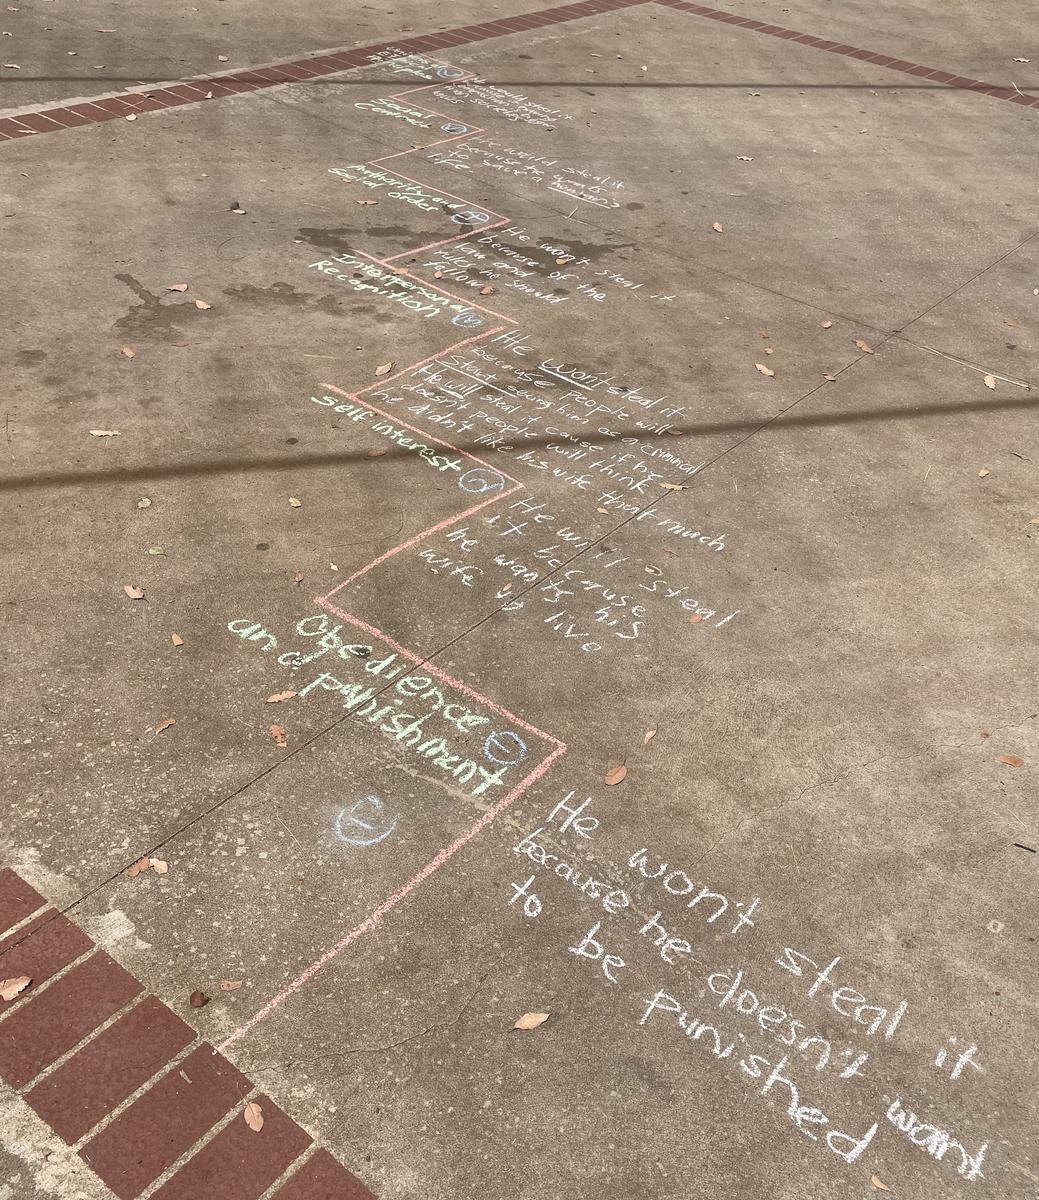 Universal
Ethical
Principle
would steal it
Social
Contract
He would steal it
because he wants
to save a human's
life.
Authority and
social order
He won't steal it
because of the
law and
rules he should
follow
Interpersonal
Recognition
He won't steal it
because people will
start seeing him as a criminal
He will steal it cause if he
doesn't people will think
he didn't like his wife that much
self interest
He will steal
it because
he wants his
wife to live
Obedience
and punishment
He won't steal it
because he doesn't want
to be punished